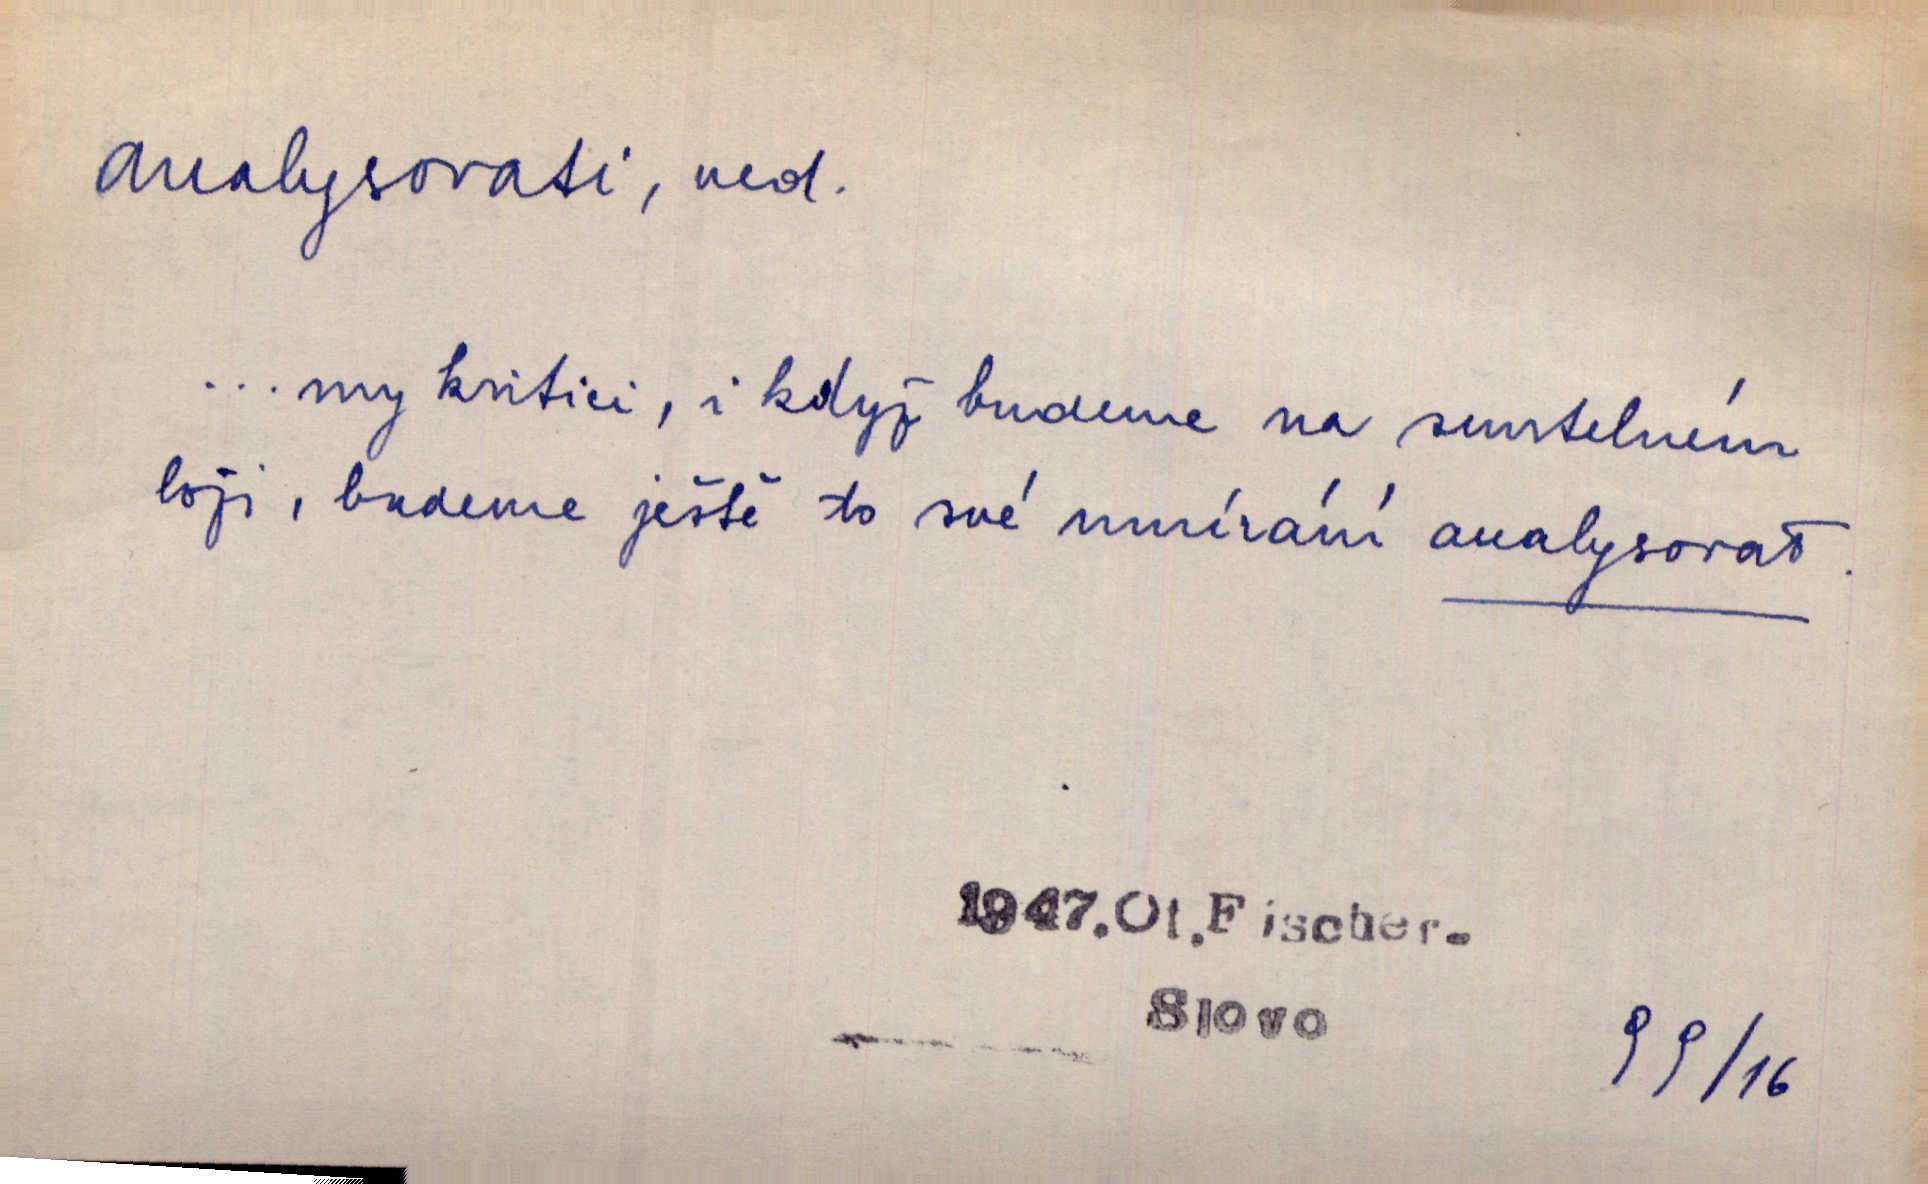 analysovati, ned.
... my kritici, i když budeme na smrtelném
loži, budeme ještě to své umírání analysovat.
1947.Ot.Fischer-
Slovo
99/16